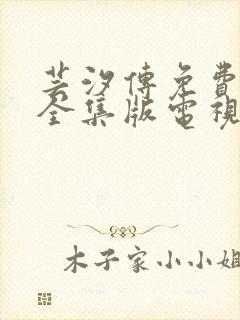 芸汐傳免費
全集版電視
木子家小小姐